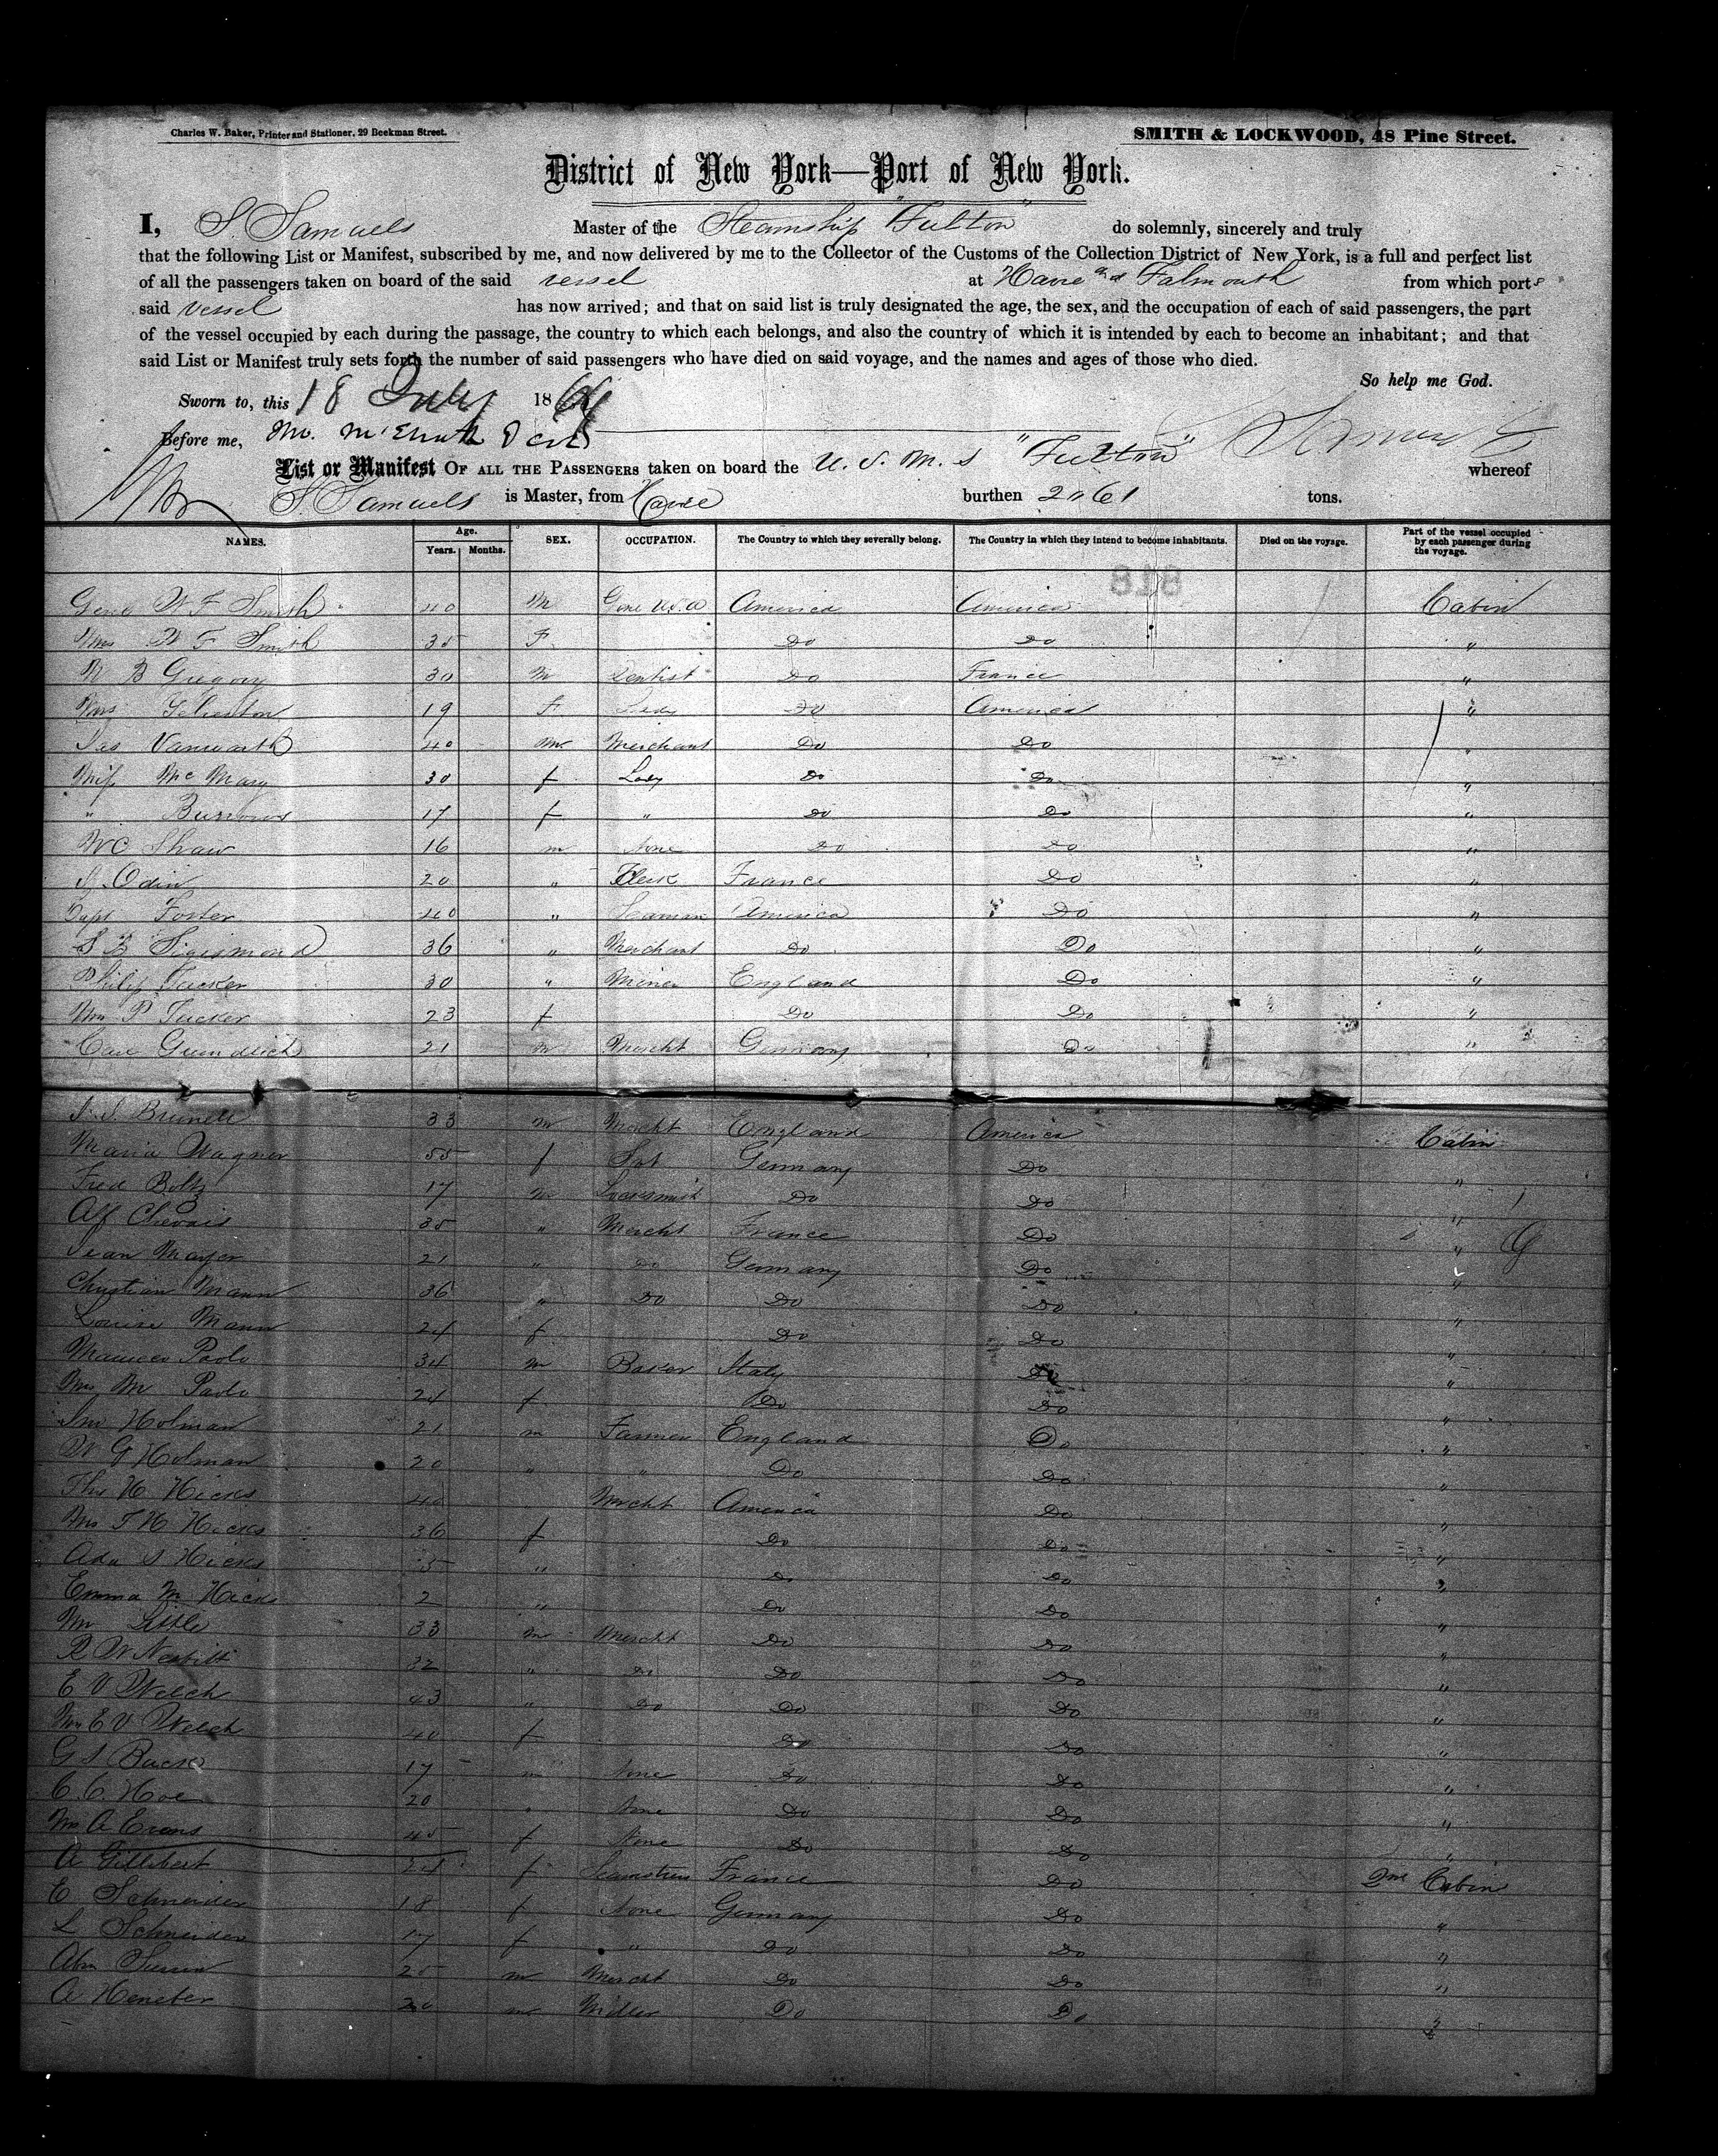 Charles W. Baker, Printer and Stationer, 29 Beekman Street.
SMITH & LOCKWOOD, 48 Pine Street.
District of New York—Port of New York.
I, S Samuels Master of the Steamship "Fulton" do solemnly, sincerely and truly
that the following List or Manifest, subscribed by me, and now delivered by me to the Collector of the Customs of the Collection District of New York, is a full and perfect list
of all the passengers taken on board of the said vessel at Havre and Falmouth from which ports
said vessel has now arrived; and that on said list is truly designated the age, the sex, and the occupation of each of said passengers, the part
of the vessel occupied by each during the passage, the country to which each belongs, and also the country of which it is intended by each to become an inhabitant; and that
said List or Manifest truly sets forth the number of said passengers who have died on said voyage, and the names and ages of those who died.
So help me God.
Sworn to, this 18 July 186
Before me,
List or Manifest OF ALL THE PASSENGERS taken on board the U. S. M. S "Fulton" whereof
S Samuels is Master, from Havre burthen 2061 tons.
NAMES. Age. Years. Months. SEX. OCCUPATION. The Country to which they severally belong. The Country in which they intend to become inhabitants. Died on the voyage. Part of the vessel occupied by each passenger during the voyage.
818
Genl W F Smith 40 M Genl U.S.A America America Cabin
Mrs W F Smith 35 F Do Do "
B Gregory 30 m Dentist Do France "
19 F Lady Do America "
Jas 40 m Merchant Do Do "
Miss Mc Mary 30 f Lady Do Do "
" Burrows 17 f " Do Do "
W C Shaw 16 m None Do Do "
Odin 20 " Clerk France Do "
Capt Foster 40 " Seaman America Do "
S B Sigismond 36 " Merchant Do Do "
Philip Tucker 30 " Miner England Do "
Mrs P Tucker 23 f Do Do "
Carl Gumdlich 21 m Mercht Germany Do "
33 m Mercht England America Cabin
Maria Wagner 55 f Germany Do "
Fred Boltz 17 m Locksmith Do Do "
Alf Chevais 35 " Mercht France Do "
Jean Mayer 21 " Do Germany Do "
Christian Mann 36 " Do Do Do "
Louise Mann 24 f Do Do "
Paolo 34 m Baker Italy Do "
Mrs M Paolo 24 f Do Do "
Jno Holman 21 m Farmer England Do "
W G Holman 20 " " Do Do "
Thos H Hicks 40 Mercht America Do "
Mrs T H Hicks 36 f Do Do "
Ada S Hicks 5 " Do Do "
Emma M Hicks 2 " Do Do "
Little 33 m Mercht Do Do "
R W Nesbitt 32 " Do Do Do "
E V Welch 43 " Do Do Do "
Mrs E V Welch 40 f Do Do "
G S 17 m None Do Do "
C. C. Hoe 20 " None Do Do "
Mrs A Evans 45 f None Do Do "
A Gillibert 24 f Seamstress France Do 2nd Cabin
E Schneider 18 f None Germany Do "
L Schneider 17 f " Do Do "
Abm 25 m Mercht Do Do "
A Heneber 20 m Miller Do Do "